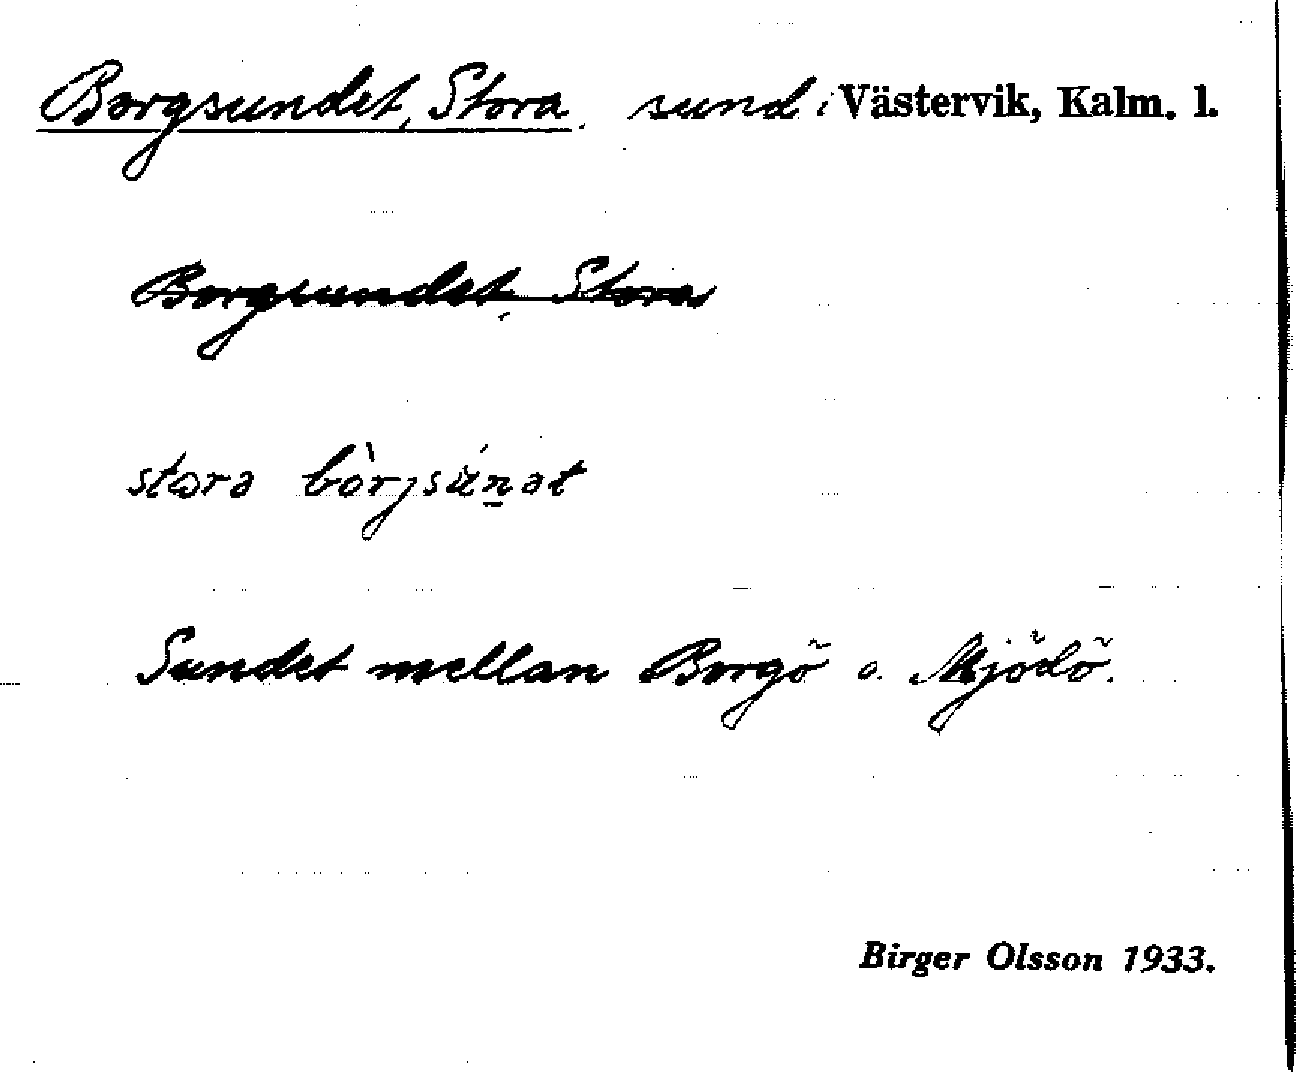 Borgsundet, Stora. sund i Västervik, Kalm. l.
Borgsundet, Stora
stora bòrjsún̲ət
Sundet mellan Borgö o. Mjödö.
Birger Olsson 1933.